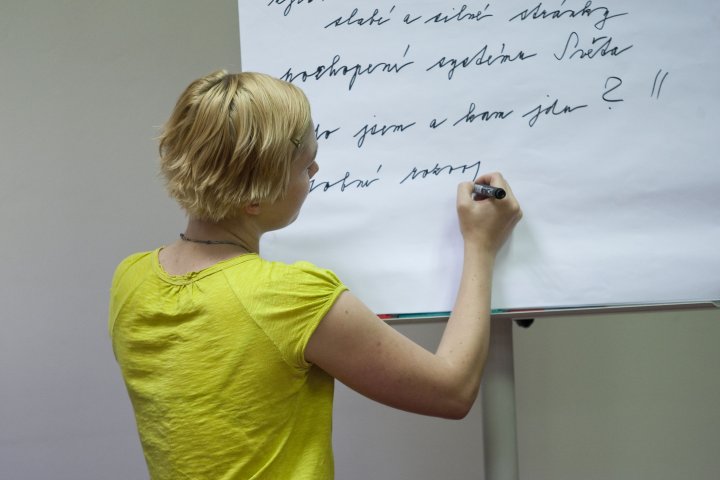 slabé a silné stránky
pochopení systému Světa
jsem a kam jdu ? "
rozvoj